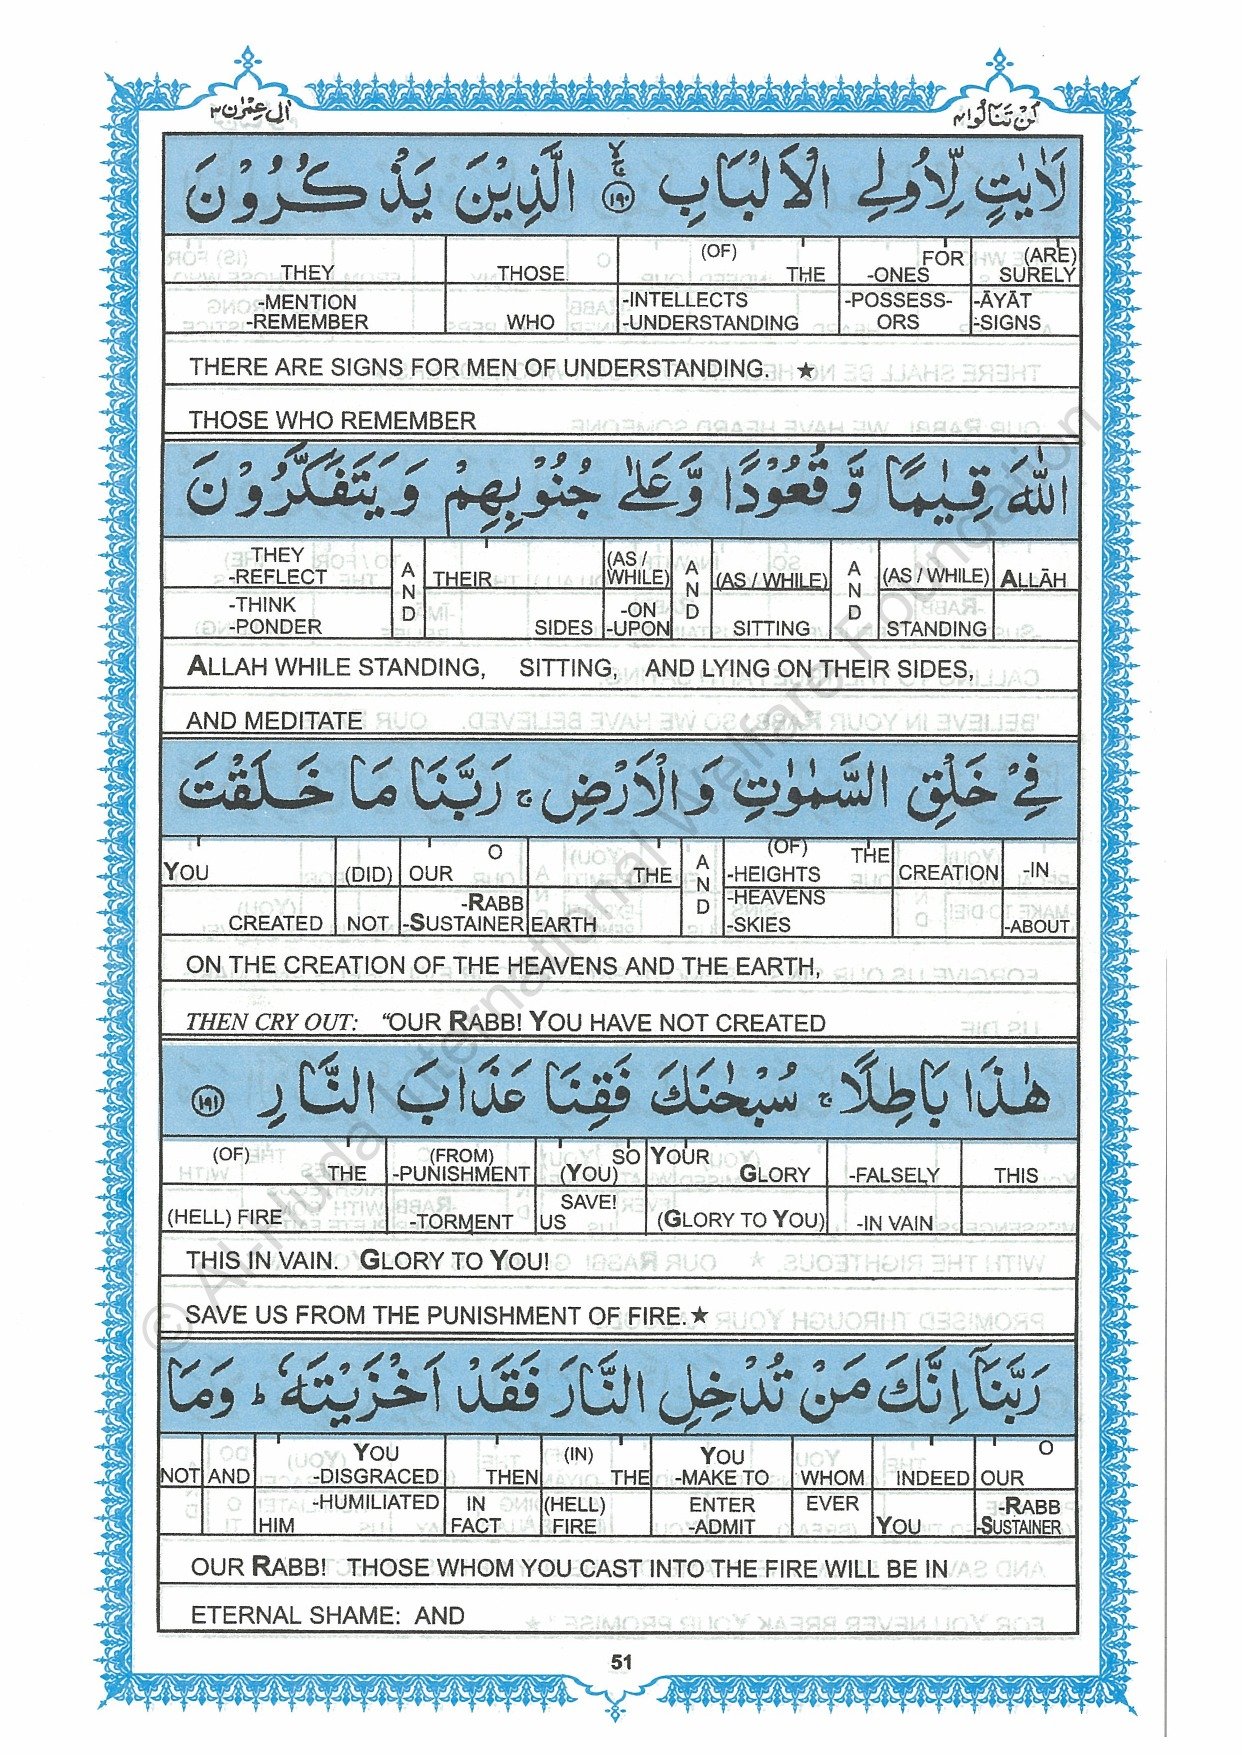 اٰلِ عِمْرٰن ٣ لَنْ تَنَالُوا ٤
لَاٰيٰتٍ لِّاُولِي الْاَلْبَابِ ۚۙ ١٩٠ الَّذِيْنَ يَذْكُرُوْنَ
THEY THOSE (OF) THE FOR -ONES (ARE) SURELY
-MENTION -REMEMBER WHO -INTELLECTS -UNDERSTANDING -POSSESS- ORS -ĀYĀT -SIGNS
THERE ARE SIGNS FOR MEN OF UNDERSTANDING. ★
THOSE WHO REMEMBER
اللّٰهَ قِيٰمًا وَّ قُعُوْدًا وَّ عَلٰى جُنُوْبِهِمْ وَ يَتَفَكَّرُوْنَ
THEY -REFLECT AND THEIR (AS / WHILE) AND (AS / WHILE) AND (AS / WHILE) ALLĀH
-THINK -PONDER SIDES -ON -UPON SITTING STANDING
ALLAH WHILE STANDING, SITTING, AND LYING ON THEIR SIDES,
AND MEDITATE
فِيْ خَلْقِ السَّمٰوٰتِ وَ الْاَرْضِ ۚ رَبَّنَا مَا خَلَقْتَ
YOU (DID) OUR O THE AND (OF) -HEIGHTS THE CREATION -IN
CREATED NOT -RABB -SUSTAINER EARTH -HEAVENS -SKIES -ABOUT
ON THE CREATION OF THE HEAVENS AND THE EARTH,
THEN CRY OUT: “OUR RABB! YOU HAVE NOT CREATED
هٰذَا بَاطِلًا ۚ سُبْحٰنَكَ فَقِنَا عَذَابَ النَّارِ ١٩١
(OF) THE (FROM) -PUNISHMENT SO (YOU) YOUR GLORY -FALSELY THIS
(HELL) FIRE -TORMENT SAVE! US (GLORY TO YOU) -IN VAIN
THIS IN VAIN. GLORY TO YOU!
SAVE US FROM THE PUNISHMENT OF FIRE.★
رَبَّنَاۤ اِنَّكَ مَنْ تُدْخِلِ النَّارَ فَقَدْ اَخْزَيْتَهٗ ؕ وَمَا
NOT AND YOU -DISGRACED THEN (IN) THE YOU -MAKE TO WHOM INDEED OUR O
-HUMILIATED HIM IN FACT (HELL) FIRE ENTER -ADMIT EVER YOU -RABB -SUSTAINER
OUR RABB! THOSE WHOM YOU CAST INTO THE FIRE WILL BE IN
ETERNAL SHAME: AND
51
© Al-Huda International Welfare Foundation